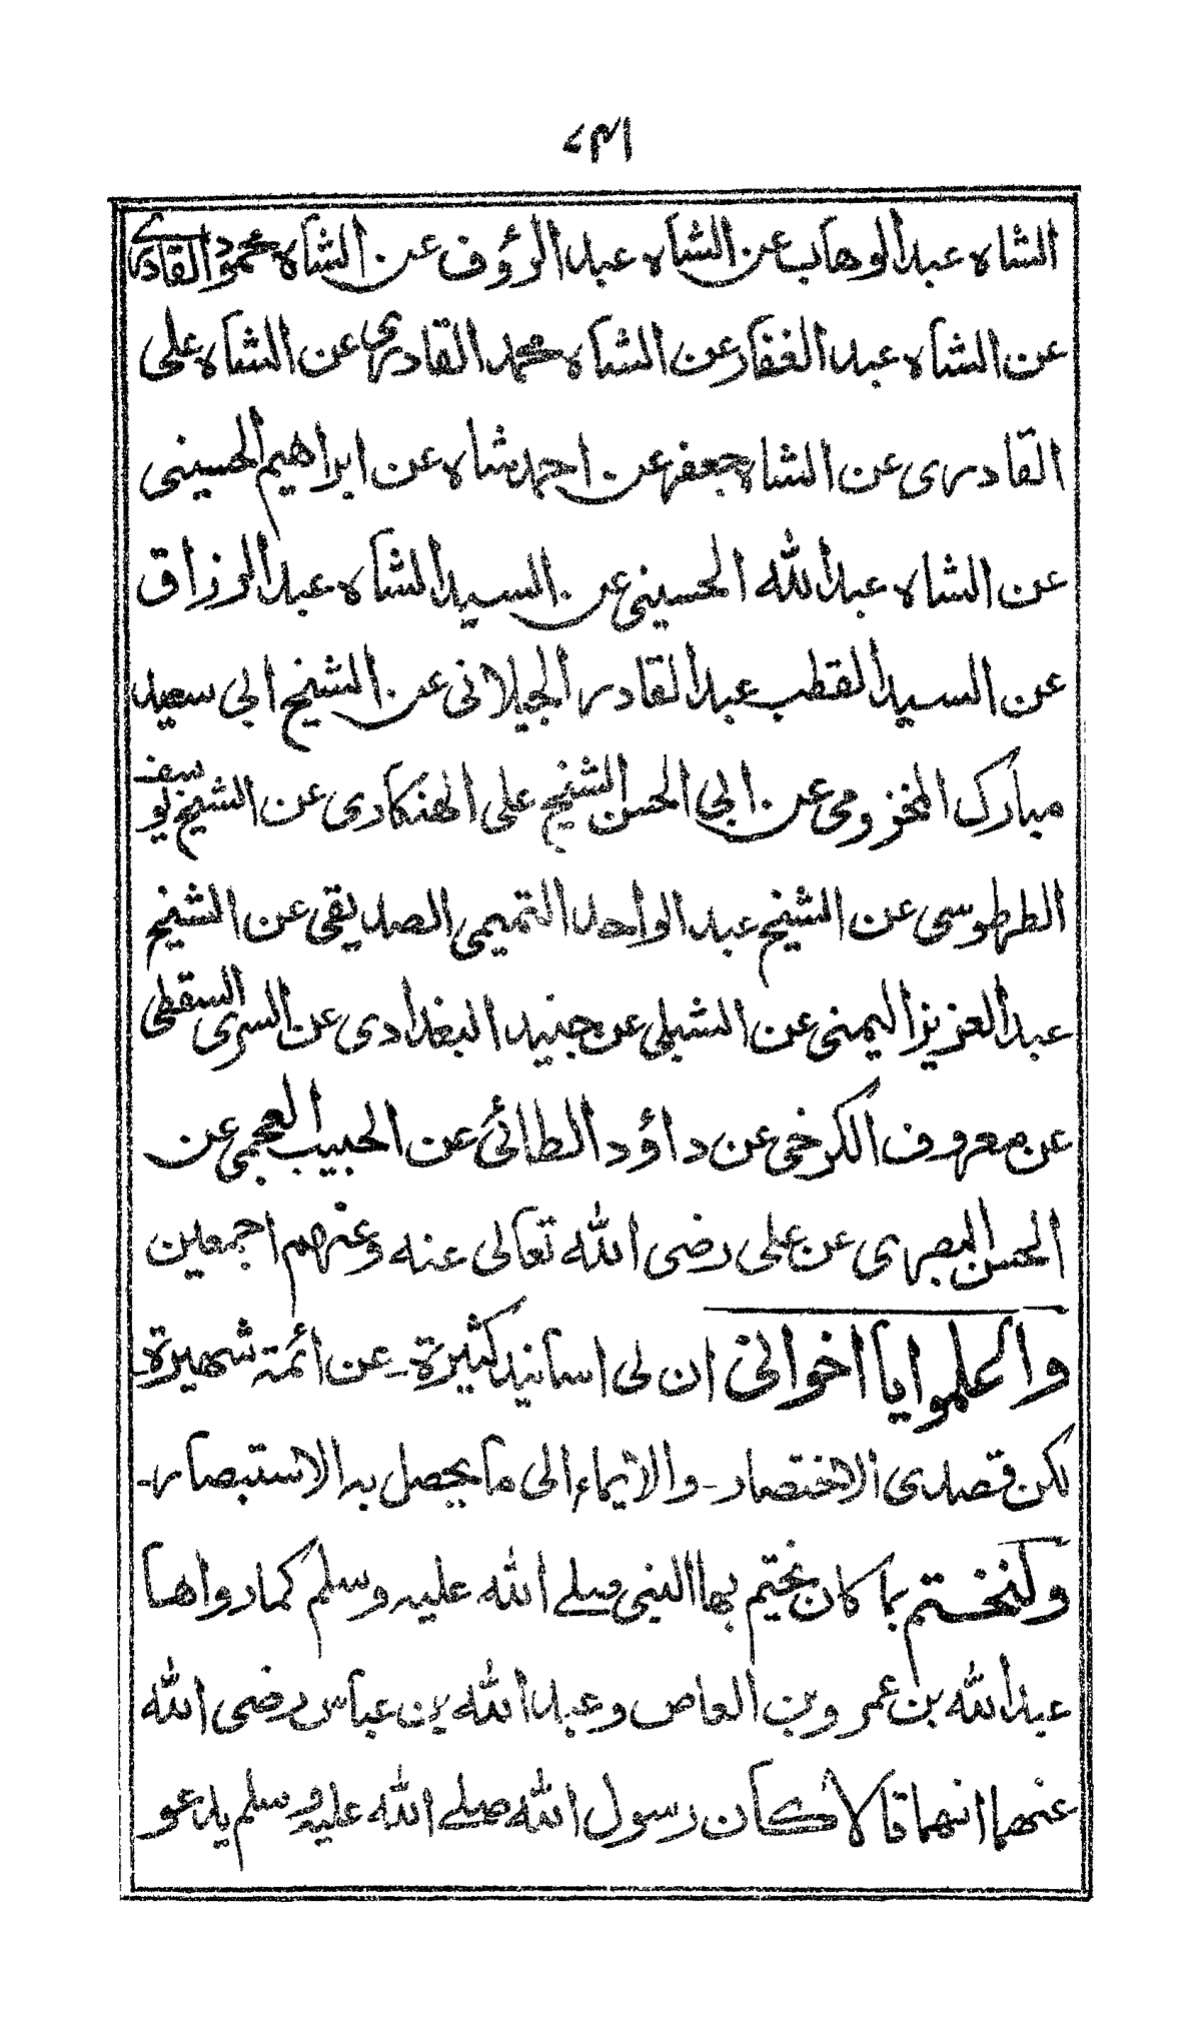 ١٣٧
الشاه عبدالوهاب عن الشاه عبدالرؤف عن الشاه محمود القادرى
عن الشاه عبدالغفار عن الشاه محمد القادرى عن الشاه على
القادرى عن الشاه جعفر عن احمد شاه عن ابراهيم الحسينى
عن الشاه عبدالله الحسينى عن السيد الشاه عبدالرزاق
عن السيد القطب عبدالقادر الجيلانى عن الشيخ ابى سعيد
مبارك المخزومى عن ابى الحسن الشيخ على الهنكادى عن الشيخ يوسف
الطرطوسى عن الشيخ عبدالواحد التميمى الصديقى عن الشيخ
عبدالعزيز اليمنى عن الشبلى عن جنيد البغدادى عن السرى السقطى
عن معروف الكرخى عن داؤد الطائى عن الحبيب العجمى عن
الحسن البصرى عن على رضى الله تعالى عنه وعنهم اجمعين
واعلموا يا اخوانى ان لى اسانيد كثيرة- عن ائمة شهيرة-
لكن قصدى الاختصار- والايماء الى ما يحصل به الاستبصار-
ولنختم بما كان يختم بها النبى صلے الله عليه وسلم كما رواها
عبدالله بن عمرو بن العاص وعبدالله بن عباس رضى الله
عنهما انهما قالا كان رسول الله صلے الله عليه وسلم يدعو